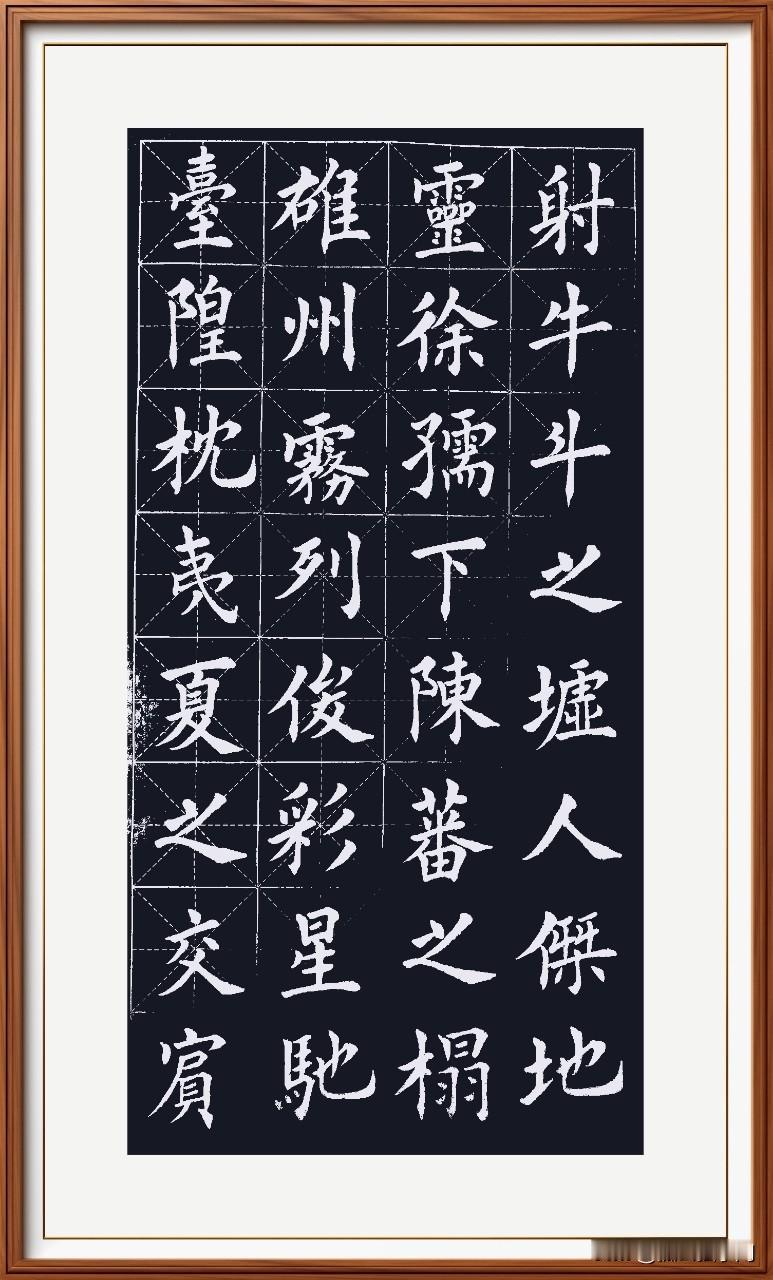 射牛斗之墟人傑地
靈徐孺下陳蕃之榻
雄州霧列俊彩星馳
臺隍枕夷夏之交賓